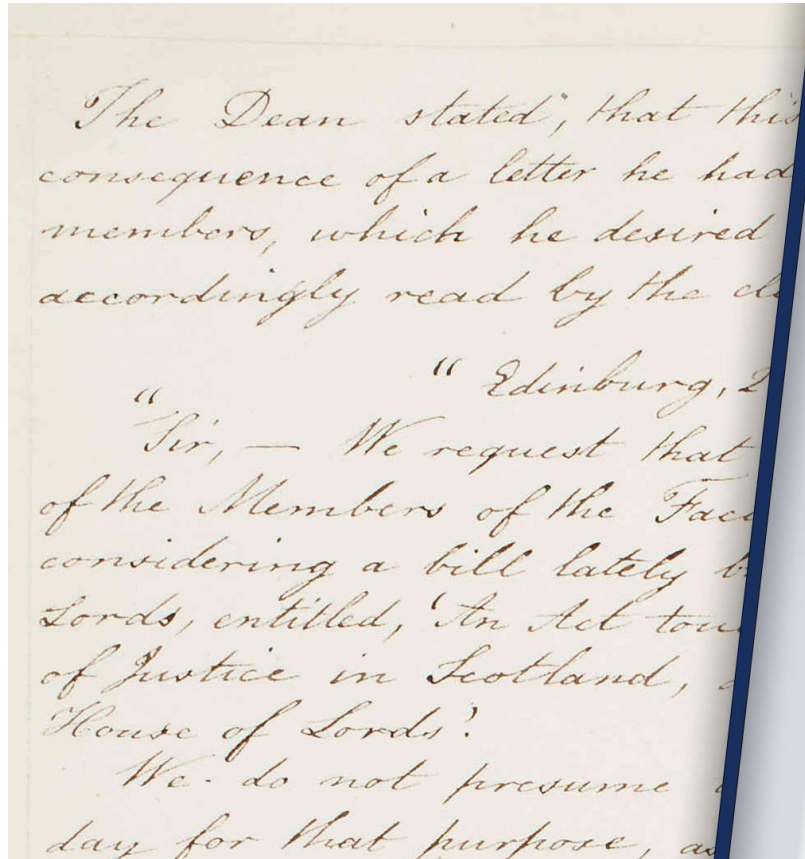 The Dean stated, that this
consequence of a letter he had
members, which he desired
accordingly read by the
" Edinburg, 2
" Sir, — We request that
of the Members of the
considering a bill lately
Lords, entitled, 'An Act
of Justice in Scotland,
House of Lords'.
We do not presume
day for that purpose, as